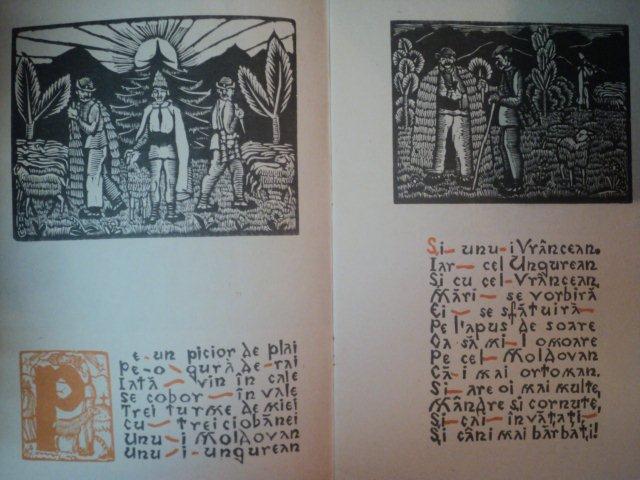 Pe-un picior de plai
Pe-o-gură de-rai
Iată vin în cale
se cobor în vale
Trei turme de miei
cu trei ciobănei
Unu-i Moldovan
Unu-i-ungurean
Și unu-i Vrâncean.
Iar cel Ungurean
Și cu cel Vrâncean,
Mări se vorbiră
Ei se sfătuiră
Pe l'apus de soare
Oa să mi-l omoare
Pe cel Moldovan
Că-i mai ortoman.
Și are oi mai multe,
Mândre și cornute,
Și cai învățați
Și câni mai bărbați!